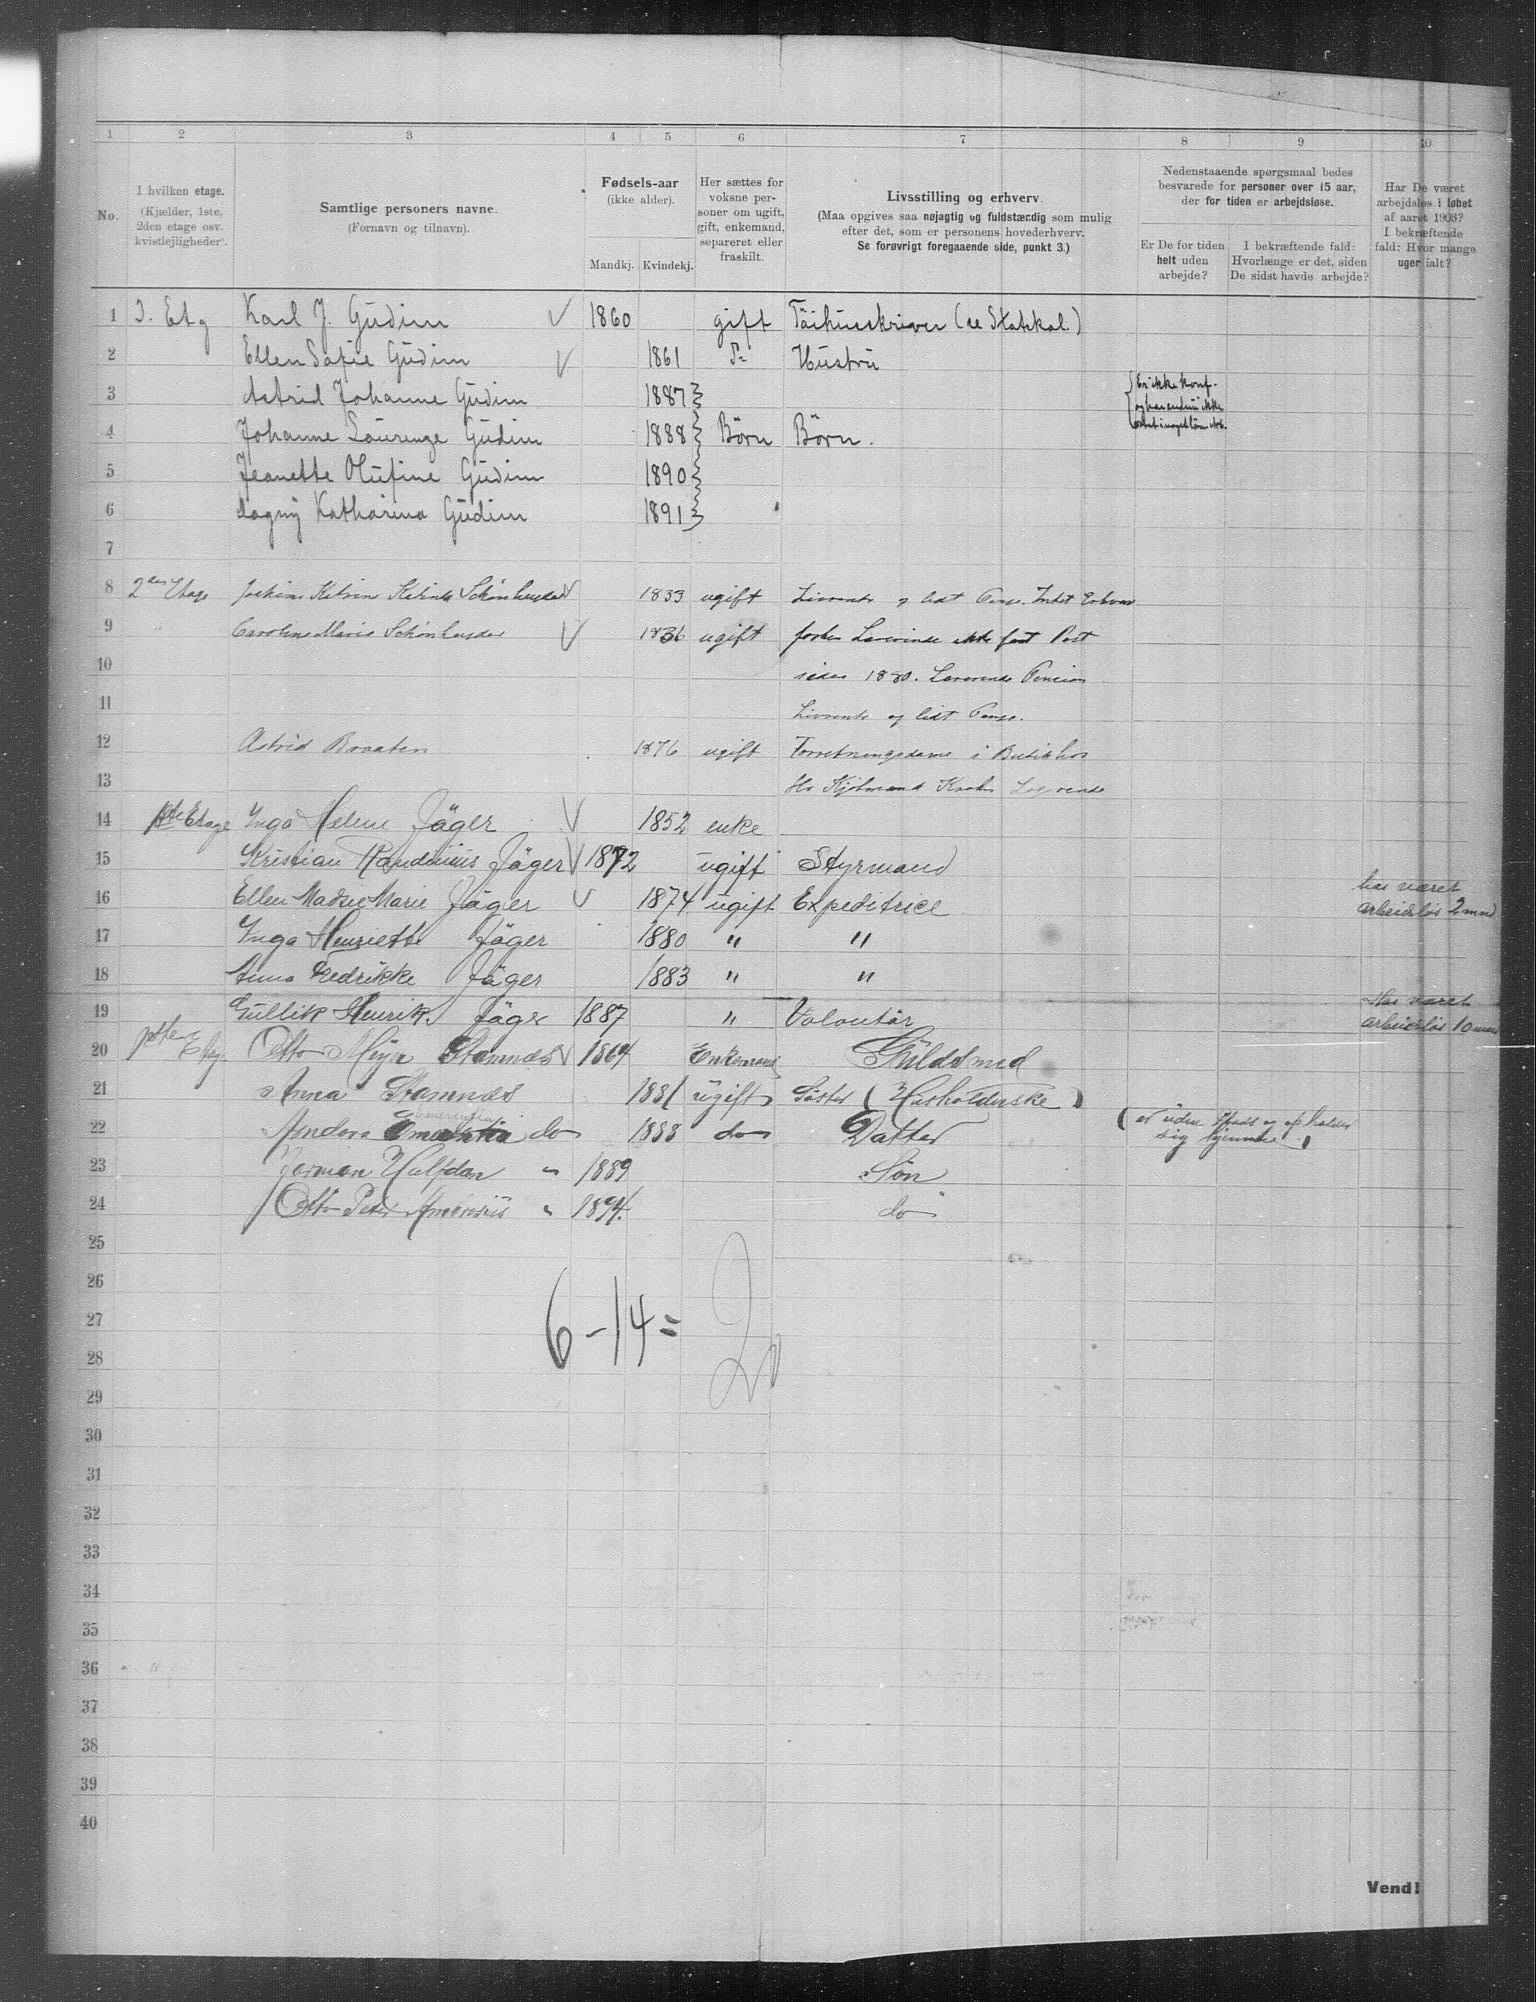 1 2 3 4 5 6 7 8 9 10
No.
I hvilken etage.
(Kjælder, 1ste, 2den etage osv. kvistlejligheder).
Samtlige personers navne.
(Fornavn og tilnavn).
Fødsels-aar
(ikke alder).
Mandkj. Kvindekj.
Her sættes for voksne personer om ugift, gift, enkemand, separeret eller fraskilt.
Livsstilling og erhverv.
(Maa opgives saa nøjagtig og fuldstændig som mulig efter det, som er personens hovederhverv.
Se forøvrigt foregaaende side, punkt 3.)
Nedenstaaende spørgsmaal bedes besvarede for personer over 15 aar, der for tiden er arbejdsløse.
Er De for tiden helt uden arbejde?
I bekræftende fald: Hvorlænge er det, siden De sidst havde arbejde?
Har De været arbejdsløs i løbet af aaret 1903? I bekræftende fald: Hvor mange uger ialt?
1 3. Etg Karl J. Gudim 1860 gift (se Statskal.)
2 Ellen Sofie Gudim 1861 Hustru
3 Astrid Johanne Gudim 1887 Er ikke konf.
4 Johanne Laurenze Gudim 1888 Børn Børn.
5 Jeanette Olufine Gudim 1890
6 Dagny Katharina Gudim 1891
7
8 2den Etage 1833 ugift Livrente og lidt Penge. Intet Erhverv
9 Caroline Marie Schønheyder 1836 ugift forhen Lærerinde ikke fast Post
10 siden 1880. Lærerinde Pension
11 Livrente og lidt Penge.
12 Astrid Braaten 1876 ugift Forretningsdame i Butik hos
13 Logerende
14 1ste Etage Inga Helene Jäger 1852 enke
15 Kristian Jäger 1872 ugift Styrmand
16 Ellen Madsie Marie Jäger 1874 ugift Expeditrice har været arbeidsløs 2 mnd
17 Inga Henriette Jäger 1880 " "
18 Anna Fredrikke Jäger 1883 " "
19 Gullik Henrik Jäger 1887 " Volontør Har været arbeidsløs 10
20 1ste Etag. Otto Meyer Stamnæs 1864 Enkemand Guldsmed
21 Anna Stamnæs 1881 ugift Søster (Husholderske)
22 Andora do 1888 do Datter (er uden Plads og opholder sig hjemme)
23 Herman Halfdan " 1889 Søn
24 Otto Peter Ambrosius " 1894. do
25
26
27 6 - 14 = 20
28
29
30
31
32
33
34
35
36
37
38
39
40
Vend!